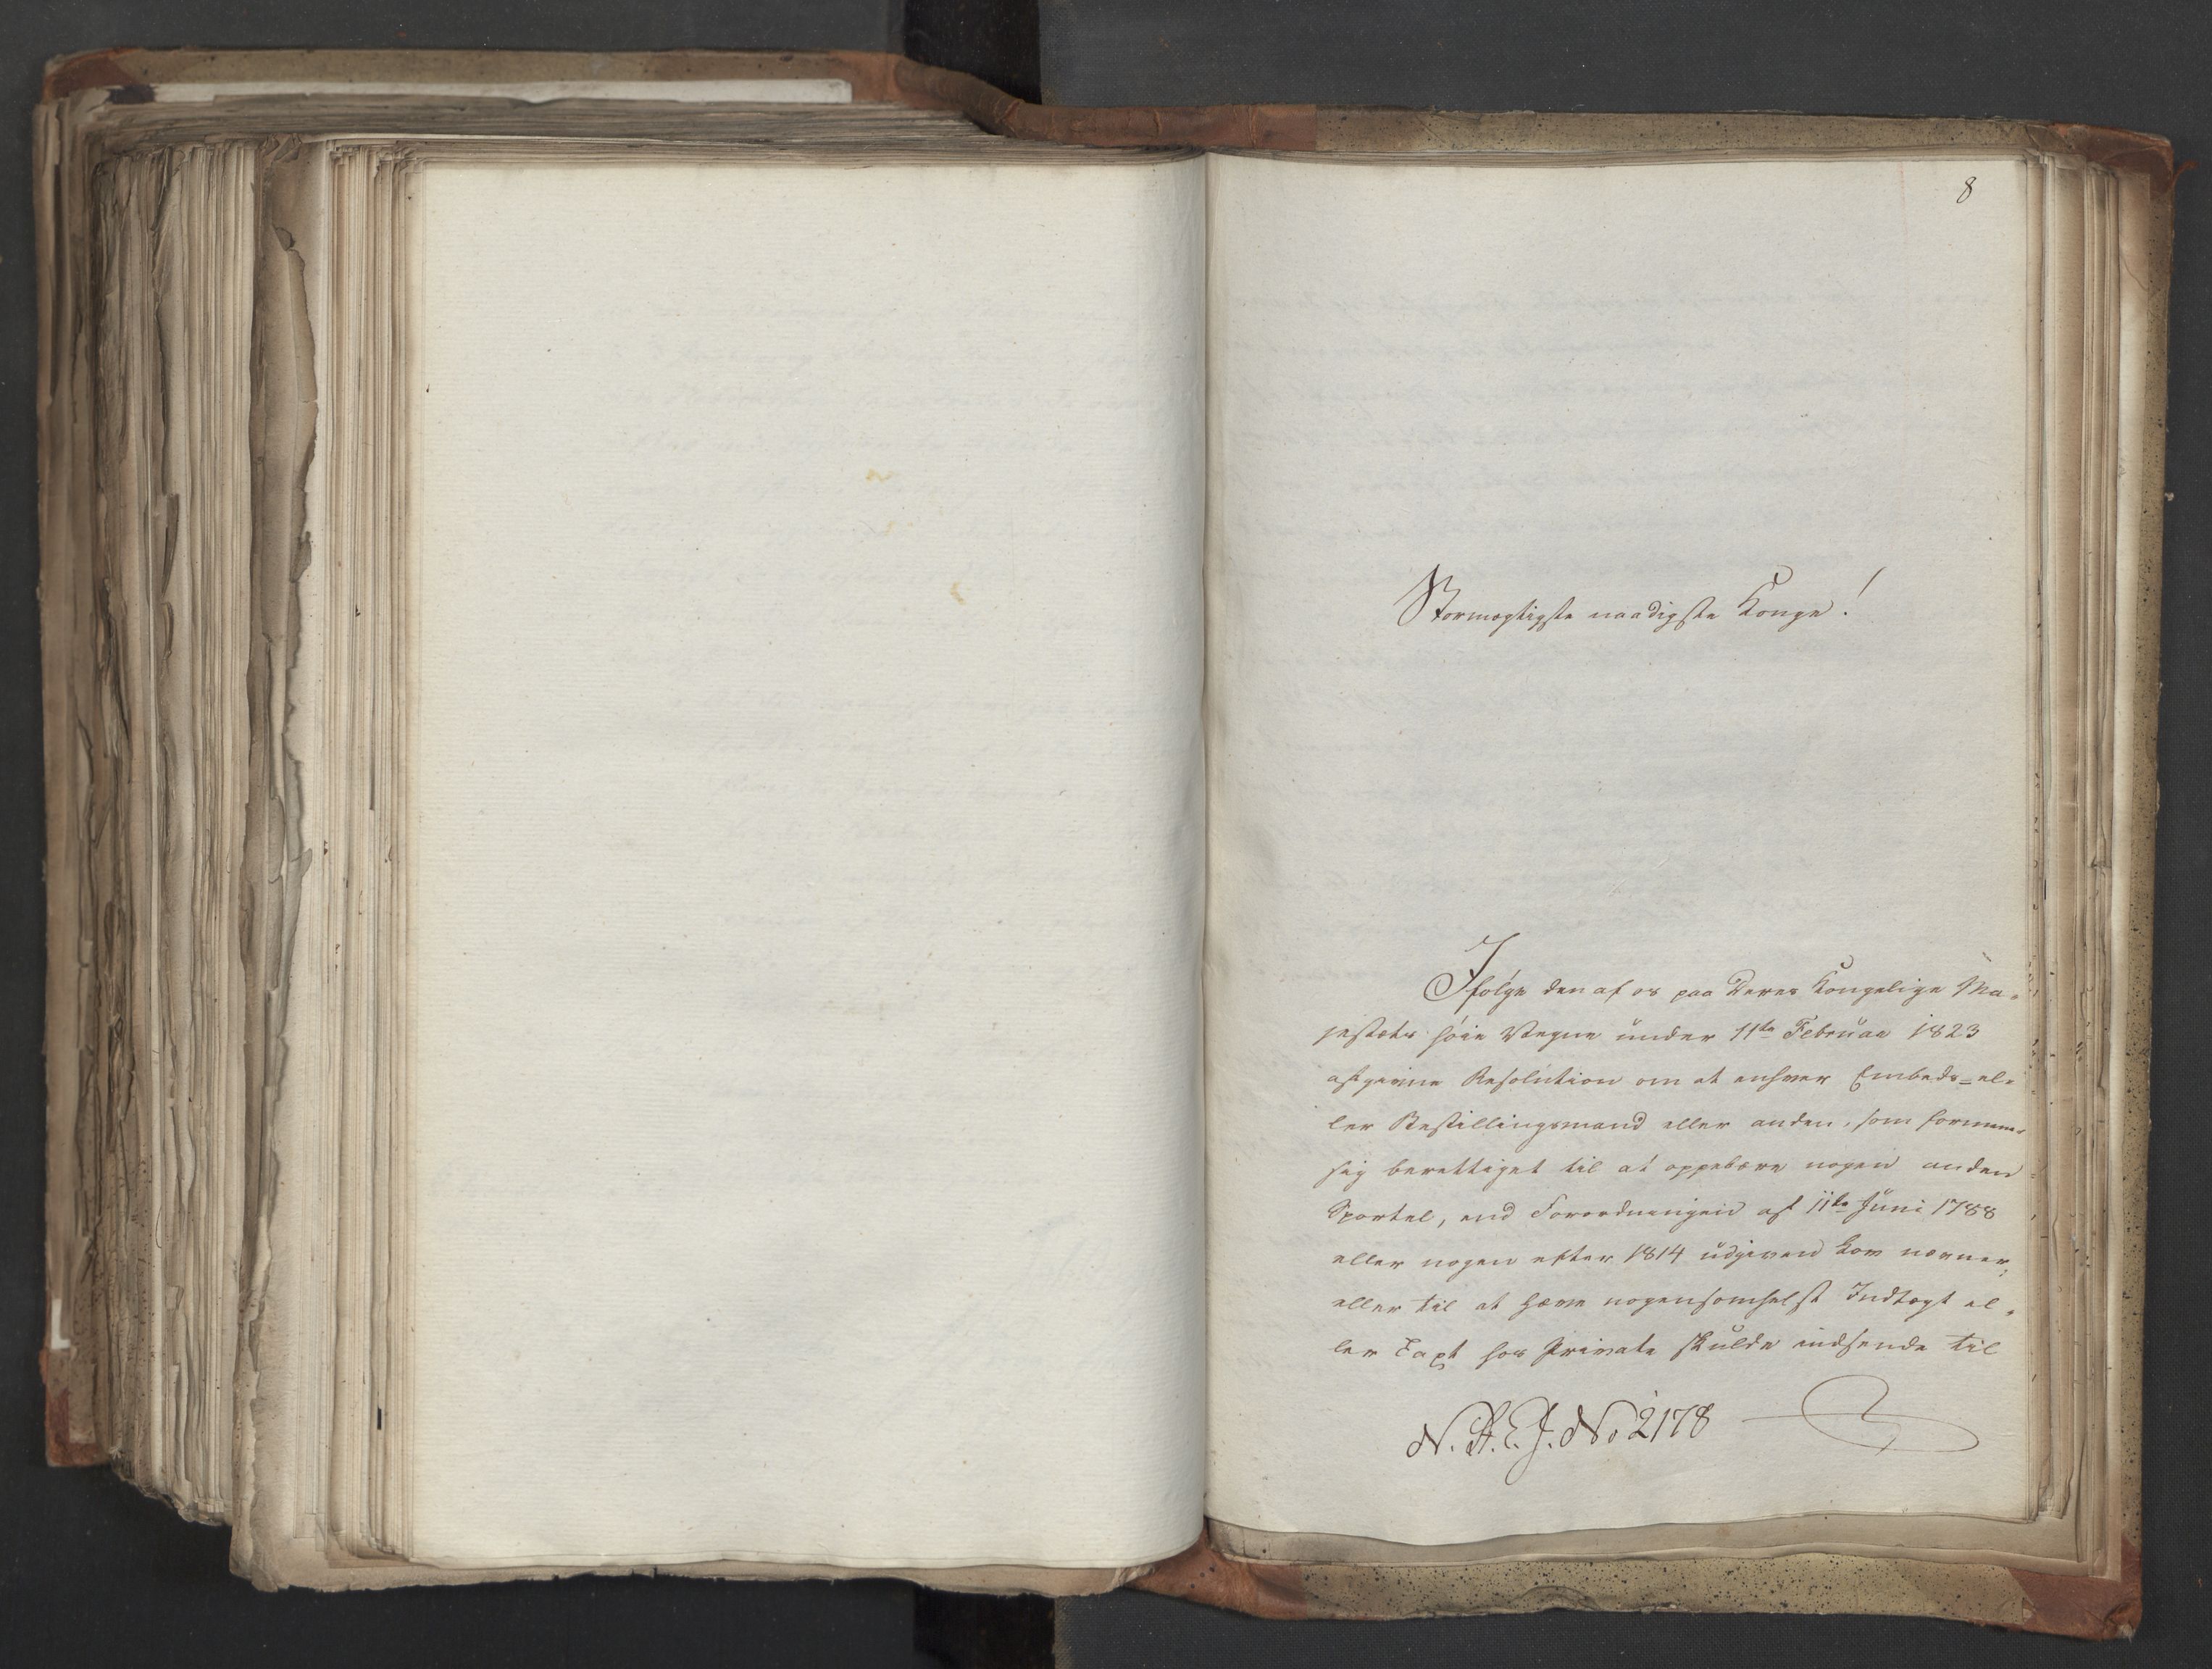 8
Stormægtigste naadigste Konge!
Ifølge den af os paa Deres Kongelige Ma-
jestæts høie Vegne under 11te Februar 1823
afgivne Resolution om at enhver Embeds- el-
ler Bestillingsmand eller anden, som formener
sig berettiget til at oppebære nogen anden
Sportel, end Forordningen af 11te Juni 1788
eller nogen efter 1814 udgiven Lov nævner,
eller til at hæve nogensomhelst Indtægt el-
ler Taxt hos Private skulde indsende til
N. A. E. J. No 2178